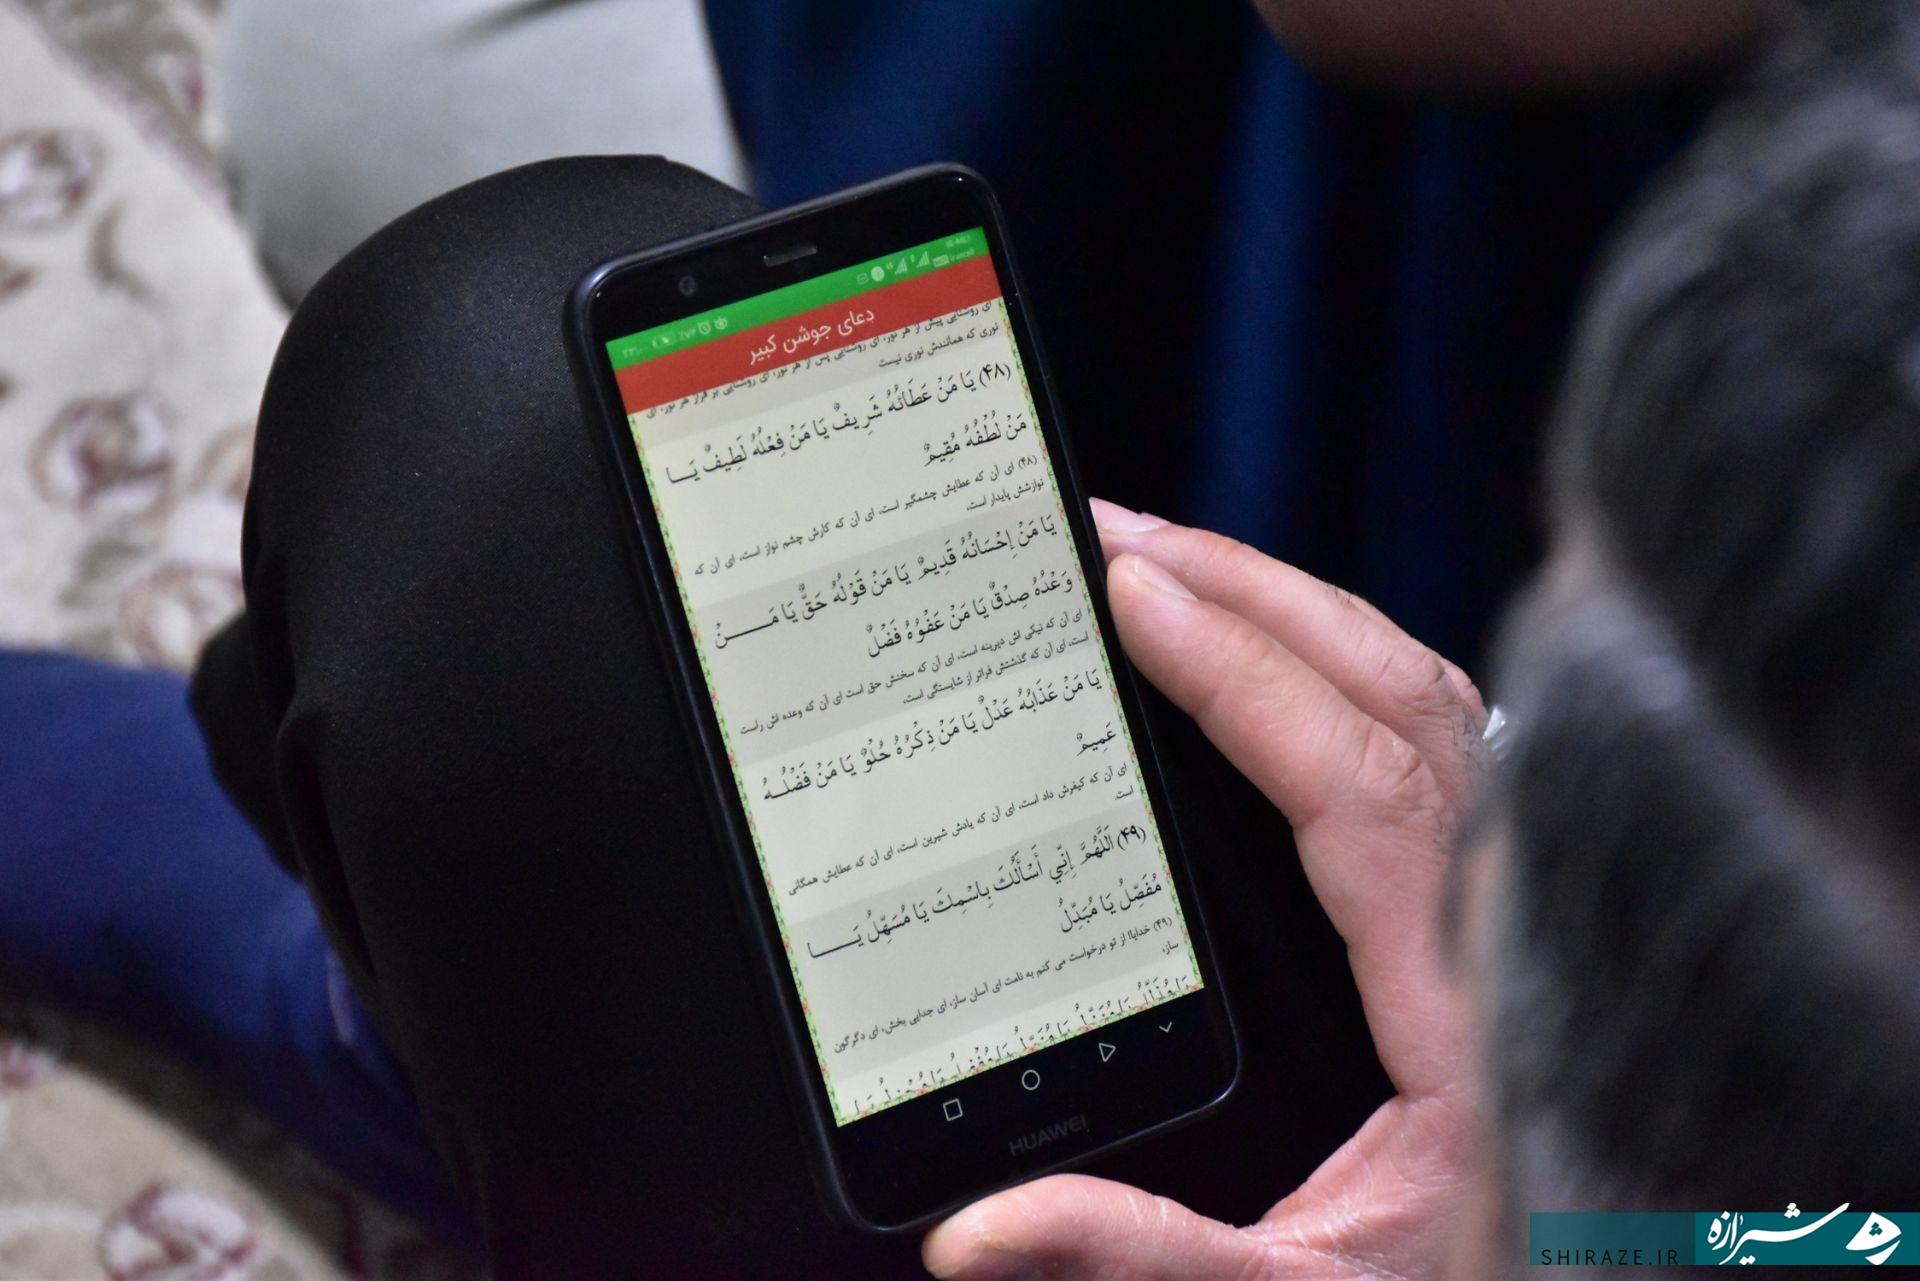 IR-MCI
Irancell
٪۷۳
دعای جوشن کبیر
ای روشنایی پیش از هر نور، ای روشنایی پس از هر نور، ای روشنایی بر فراز هر نور، ای
نوری که همانندش نوری نیست
(۴۸) يَا مَنْ عَطَائُهُ شَرِيفٌ يَا مَنْ فِعْلُهُ لَطِيفٌ يَـــا
مَنْ لُطْفُهُ مُقِيمٌ
(۴۸) ای آن که عطایش چشمگیر است، ای آن که کارش چشم نواز است، ای آن که
نوازشش پایدار است،
يَا مَنْ إِحْسَانُهُ قَدِيمٌ يَا مَنْ قَوْلُهُ حَقٌّ يَا مَـــــنْ
وَعْدُهُ صِدْقٌ يَا مَنْ عَفْوُهُ فَضْلٌ
ای آن که نیکی اش دیرینه است، ای آن که سخنش حق است ای آن که وعده اش راست
است، ای آن که گذشتش فراتر از شایستگی است،
يَا مَنْ عَذَابُهُ عَدْلٌ يَا مَنْ ذِكْرُهُ حُلْوٌ يَا مَنْ فَضْلُــهُ
عَمِيمٌ
ای آن که کیفرش داد است، ای آن که یادش شیرین است، ای آن که عطایش همگانی
است.
(۴۹) اَللَّهُمَّ إِنِّي أَسْأَلُكَ بِاسْمِكَ يَا مُسَهِّلُ يَـــــا
مُفَصِّلُ يَا مُبَدِّلُ
(۴۹) خدایا! از تو درخواست می کنم به نامت ای آسان ساز، ای جدایی بخش، ای دگرگون
ساز،
HUAWEI
شیرازه
SHIRAZE.IR